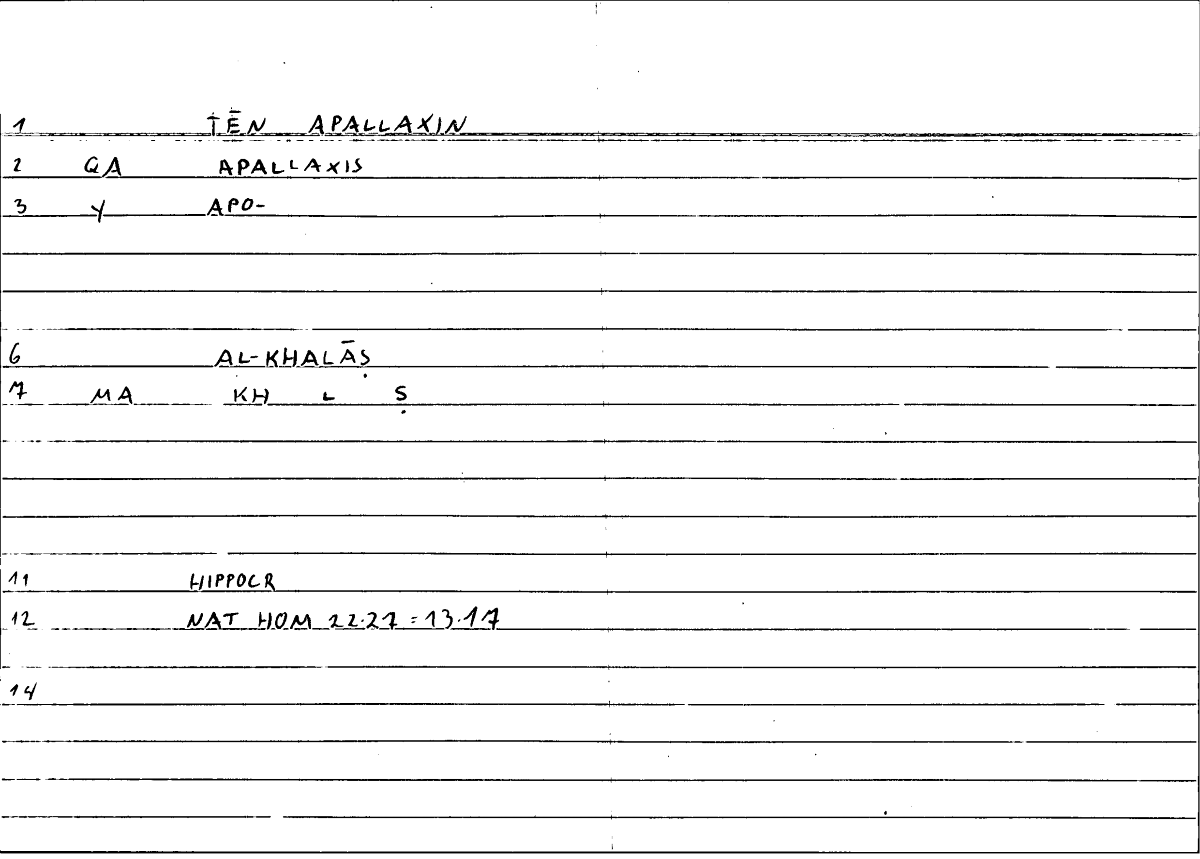 1 TĒN APALLAXIN
2 QA APALLAXIS
3 Y APO-
6 AL-KHALĀṢ
7 MA KH L Ṣ
11 HIPPOCR
12 NAT HOM 22.27 = 13.17
14